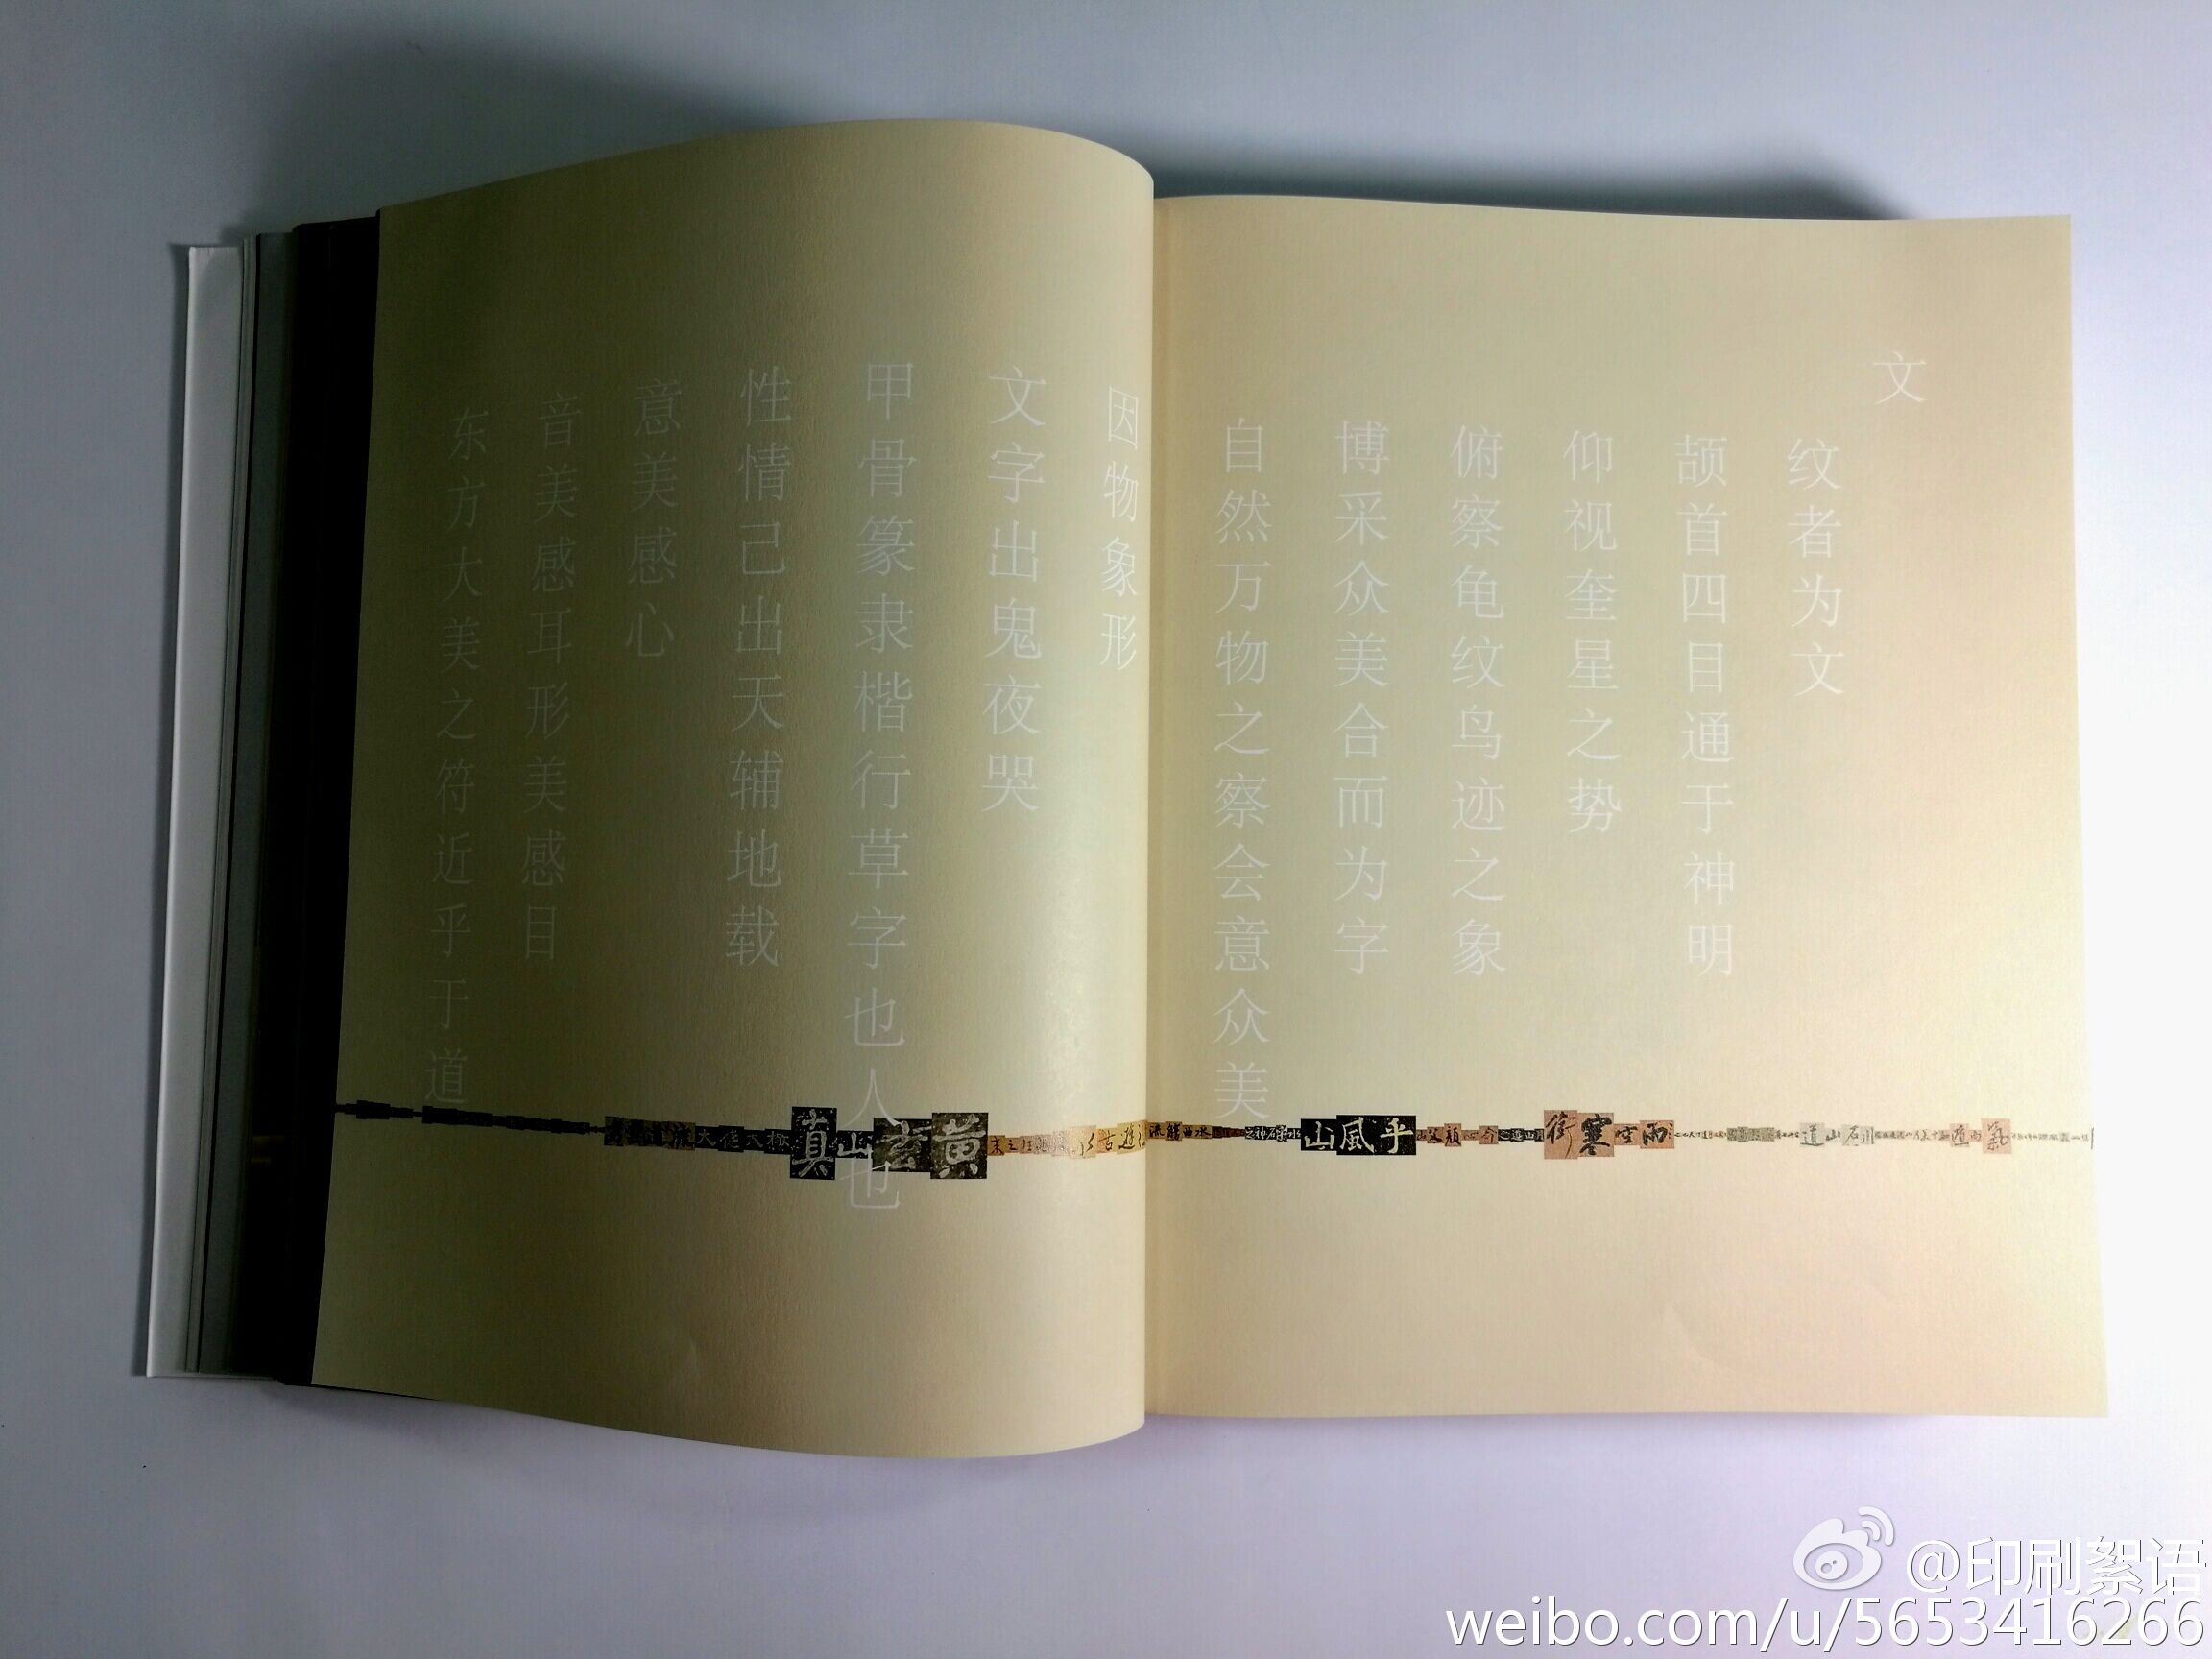 文
纹者为文
颉首四目通于神明
仰视奎星之势
俯察龟纹鸟迹之象
博采众美合而为字
自然万物之察会意众美
因物象形
文字出鬼夜哭
甲骨篆隶楷行草字也人也
性情己出天辅地载
意美感心
音美感耳形美感目
东方大美之符近乎于道
真山玄黄
山風乎
衝寒雪雨
道山石川
@印刷絮语
weibo.com/u/5653416266